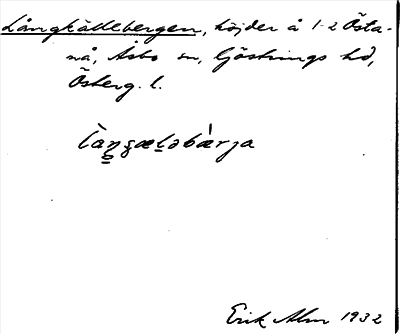 Långkällebergen, höjder å 1-2 Östa-
nå, Åsbo sn, Göstrings hd,
Österg. l.
làŋ̲ɕæl̲əbæ̀rja
Erik Alm 1932